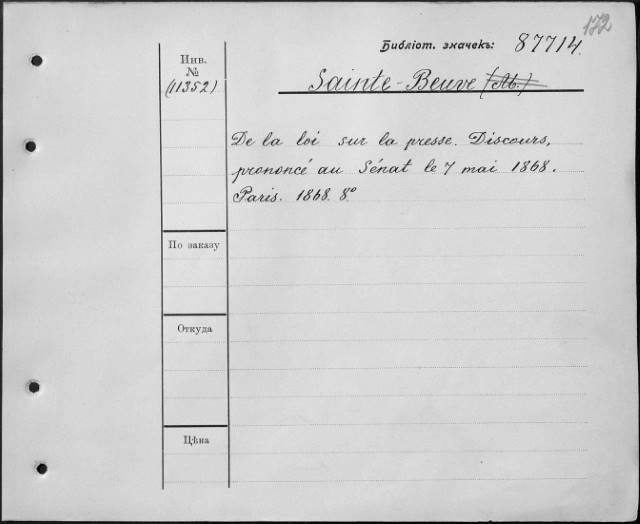 172
Библіот. значекъ: 87714.
Инв.
№
(11352)
Sainte-Beuve
De la loi sur la presse. Discours,
prononcé au Sénat le 7 mai 1868.
Paris. 1868. 8°
По заказу
Откуда
Цѣна